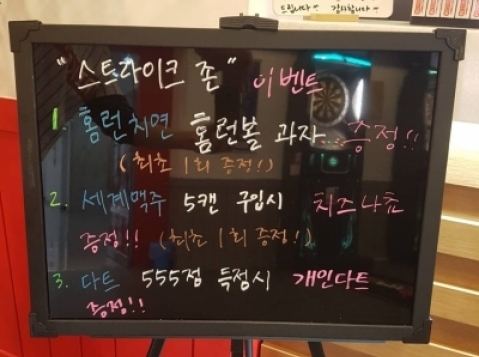 드립니다~ 감사합니다~
"스트라이크 존" 이벤트
1. 홈런치면 홈런볼 과자...증정!!
(최초 1회 증정!)
2. 세계맥주 5캔 구입시 치즈나쵸
증정!! (최초 1회 증정!)
3. 다트 555점 득점시 개인다트
증정!!